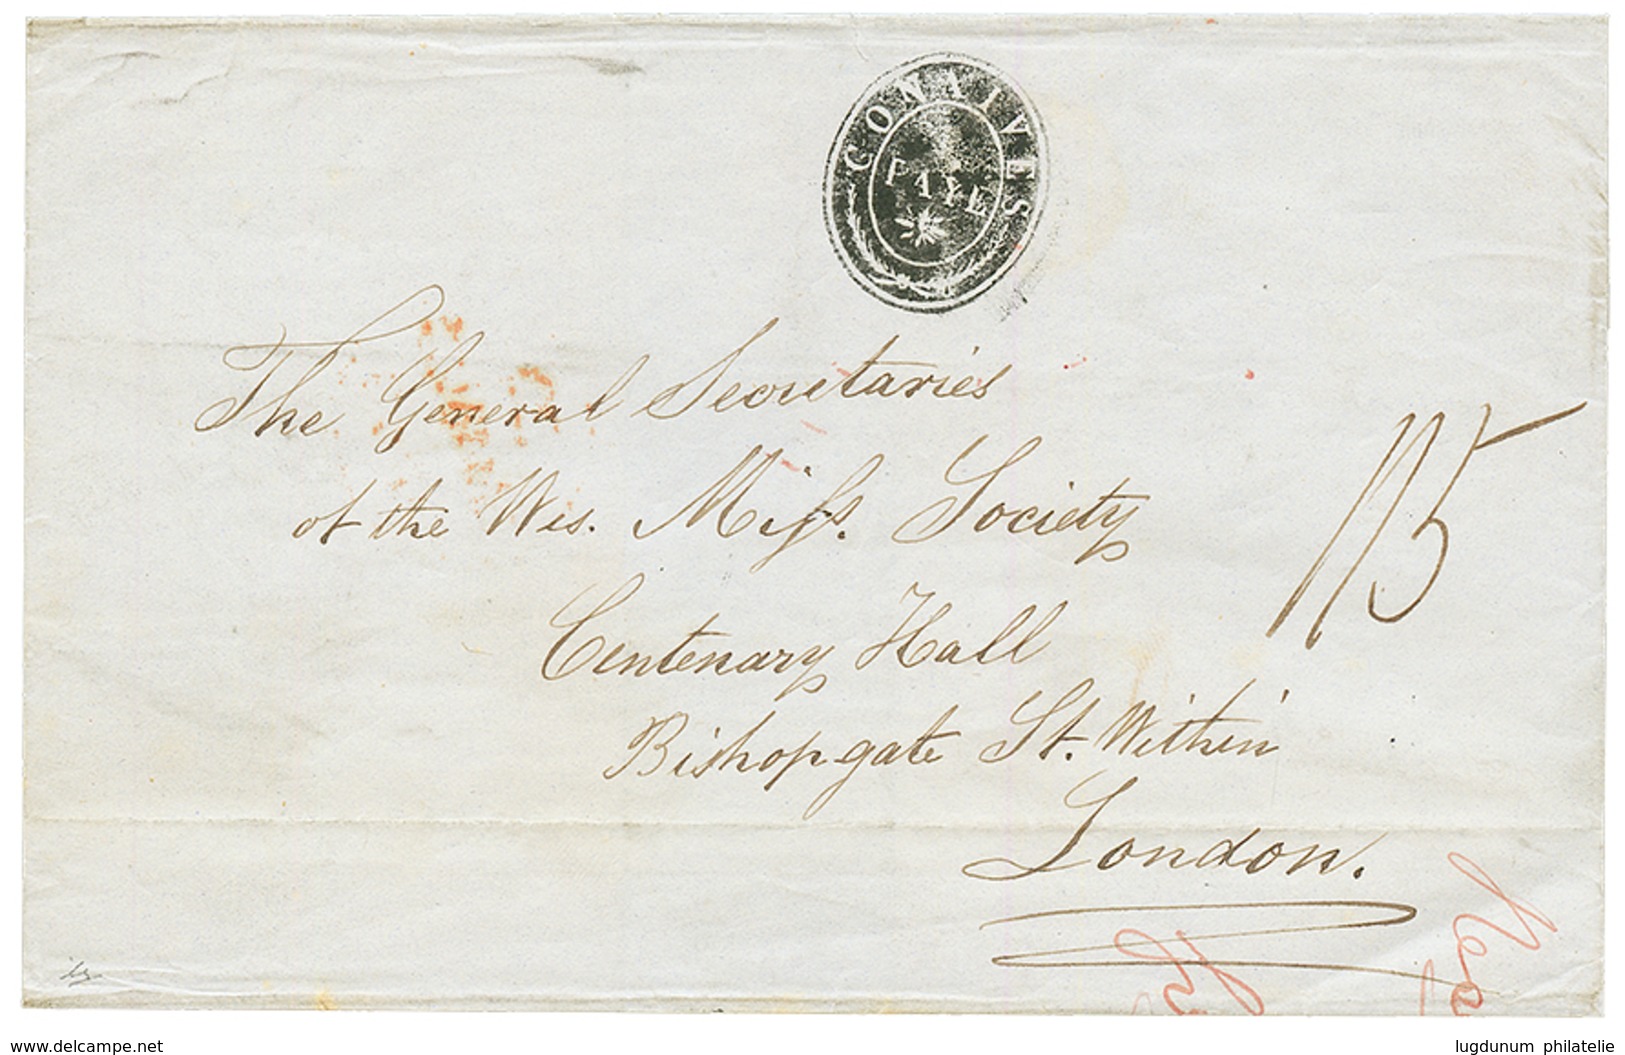 GONAIVES
The General Secretaries
of the Wes. Miss. Society
115
Centenary Hall
Bishopgate St. Within
London.
www.delcampe.net
lugdunum philatelie